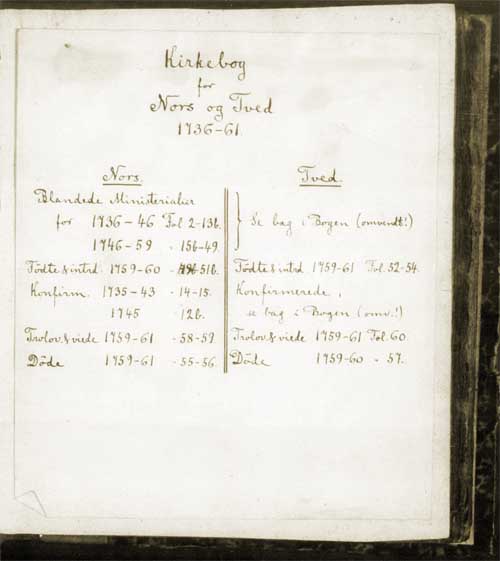 Kirkebog
for
Nors og Tved
1736-61
Nors.
Blandede Ministerialier
for 1736-46 Fol. 2-13b.
1746-59 - 15b-49.
Födte & introd. 1759-60 - 51b.
Konfirm. 1735-43 - 14-15.
1745 12b.
Trolov. & viede 1759-61 - 58-59.
Döde 1759-61 - 55-56.
Tved.
Se bag i Bogen (omvendt!)
Födte & introd. 1759-61 Fol. 52-54.
Konfirmerede,
se bag i Bogen (omv.!)
Trolov. & viede 1759-61 Fol. 60.
Döde 1759-60 - 57.